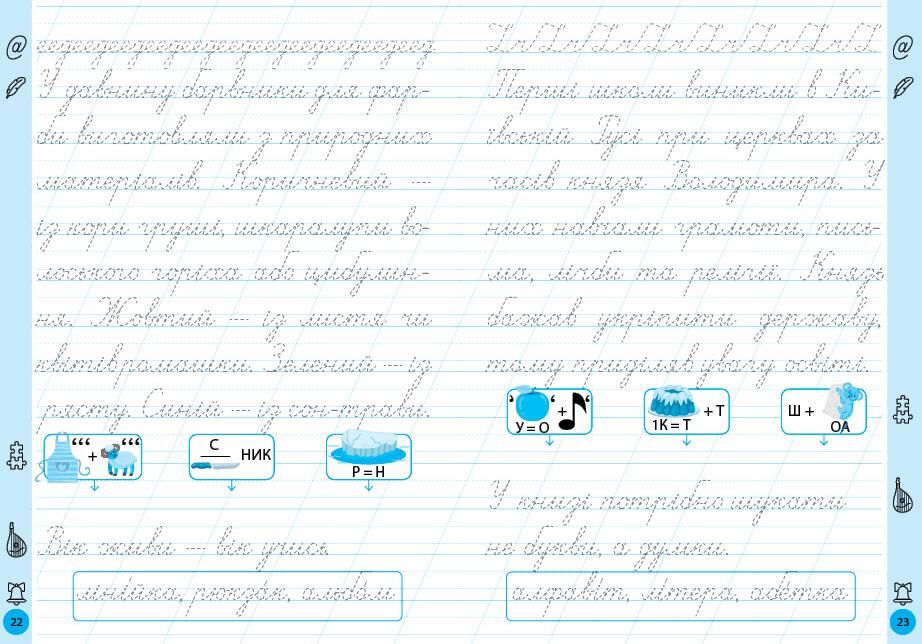 У давнину барвники для фар-
би виготовляли з природних
матеріалів. Коричневий —
із кори груші, шкаралупи во-
лоського горіха або цибулин-
ня. Жовтий — із листя чи
квітів ромашки. Зелений — із
рясту. Синій — із сон-трави.
‘‘‘ + ‘‘‘
С НИК
Р = Н
Вік живи — вік учись.
лінійка, рюкзак, альбом
22
Перші школи виникли в Ки-
ївській Русі при церквах за
часів князя Володимира. У
них навчали грамоти, пись-
ма, лічби та релігії. Князь
бажав укріпити державу,
тому приділяв увагу освіті.
‘ + ‘ У = О
1К = Т + Т
Ш + ОА
У книзі потрібно шукати
не букви, а думки.
алфавіт, літера, абетка
23